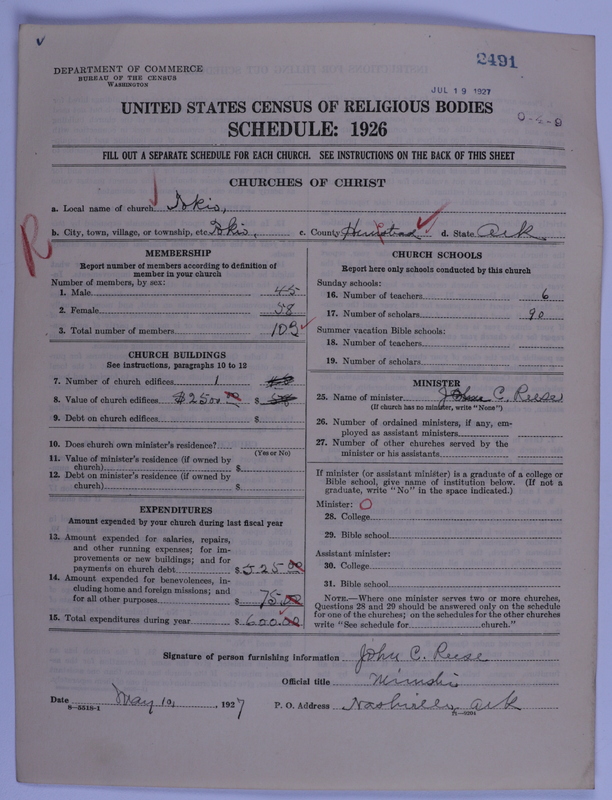 2491
DEPARTMENT OF COMMERCE
BUREAU OF THE CENSUS
WASHINGTON
JUL 19 1927
UNITED STATES CENSUS OF RELIGIOUS BODIES
SCHEDULE: 1926
FILL OUT A SEPARATE SCHEDULE FOR EACH CHURCH. SEE INSTRUCTIONS ON THE BACK OF THIS SHEET
CHURCHES OF CHRIST
a. Local name of church Tokio,
b. City, town, village, or township, etc. Tokio, c. County Hempstead d. State Ark
R
MEMBERSHIP
Report number of members according to definition of
member in your church
Number of members, by sex:
1. Male 45
2. Female 58
3. Total number of members 103
CHURCH BUILDINGS
See instructions, paragraphs 10 to 12
7. Number of church edifices 1
8. Value of church edifices $2500.00 $
9. Debt on church edifices $
10. Does church own minister's residence?
(Yes or No)
11. Value of minister's residence (if owned by
church) $
12. Debt on minister's residence (if owned by
church) $
EXPENDITURES
Amount expended by your church during last fiscal year
13. Amount expended for salaries, repairs,
and other running expenses; for im-
provements or new buildings; and for
payments on church debt $525.00
14. Amount expended for benevolences, in-
cluding home and foreign missions; and
for all other purposes $ 75.00
15. Total expenditures during year $ 600.00
CHURCH SCHOOLS
Report here only schools conducted by this church
Sunday schools:
16. Number of teachers 6
17. Number of scholars 90
Summer vacation Bible schools:
18. Number of teachers
19. Number of scholars
MINISTER
25. Name of minister John C. Reese
(If church has no minister, write "None")
26. Number of ordained ministers, if any, em-
ployed as assistant ministers
27. Number of other churches served by the
minister or his assistants
If minister (or assistant minister) is a graduate of a college or
Bible school, give name of institution below. (If not a
graduate, write "No" in the space indicated.)
Minister: O
28. College
29. Bible school
Assistant minister:
30. College
31. Bible school
NOTE.—Where one minister serves two or more churches,
Questions 28 and 29 should be answered only on the schedule
for one of the churches; on the schedules for the other churches
write "See schedule for church."
Signature of person furnishing information John C. Reese
Official title
Date May 10, 1927 P. O. Address Nashville, Ark
8-5518-1